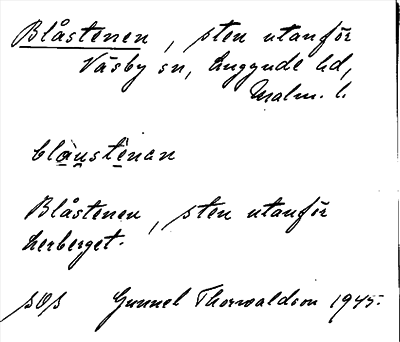 Blåstenen, sten utanför
Väsby sn, Luggude hd,
Malm. l.
blàu̠sténan
Blåstenen, sten utanför
herberget.
Gunnel Thorwaldson 1945.